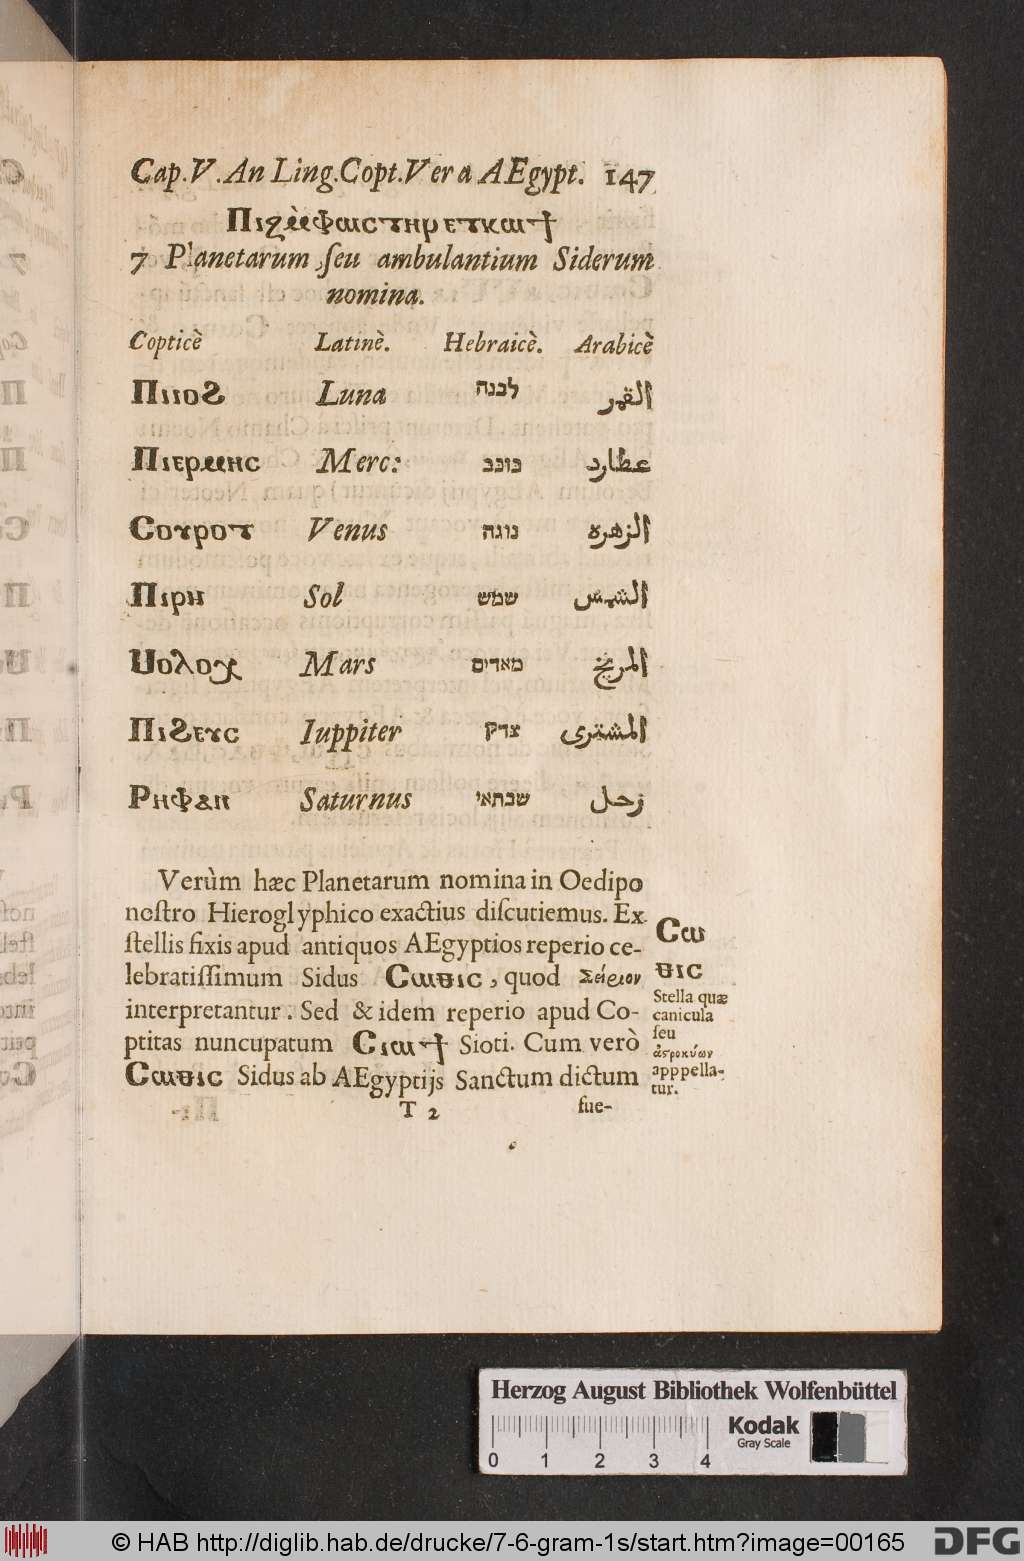 Cap. V. An Ling. Copt. Vera AEgypt. 147
7 Planetarum, ſeu ambulantium Siderum
nomina.
Copticè Latinè. Hebraicè. Arabicè
ⲠⲓⲓⲟϨ Luna לבנה القمر
Ⲡⲓⲉⲣⲙⲏⲥ Merc: כוכב عطارد
Ⲥⲟⲩⲣⲟⲧ Venus נוגה الزهره
Ⲡⲓⲣⲏ Sol שמש الشمس
Ⲙⲟⲗⲟⲭ Mars מאדים المريخ
Ⲡⲓⲍⲉⲩⲥ Iuppiter צדק المشترى
Ⲣⲏⲫⲁⲛ Saturnus שבתאי زحل
Verùm hæc Planetarum nomina in Oedipo
noſtro Hieroglyphico exactius diſcutiemus. Ex
ſtellis fixis apud antiquos AEgyptios reperio ce-
lebratiſſimum Sidus Ⲥⲱⲑⲓⲥ, quod Σείριον
interpretantur. Sed & idem reperio apud Co-
ptitas nuncupatum Ⲥⲓⲱϯ Sioti. Cum verò
Ⲥⲱⲑⲓⲥ Sidus ab AEgyptijs Sanctum dictum
T 2 fue-
Ⲥⲱ
ⲑⲓⲥ
Stella quæ
canicula
ſeu
ἀςροκύων
apppella-
tur.
Herzog August Bibliothek Wolfenbüttel
Kodak
Gray Scale
0 1 2 3 4
© HAB http://diglib.hab.de/drucke/7-6-gram-1s/start.htm?image=00165
DFG